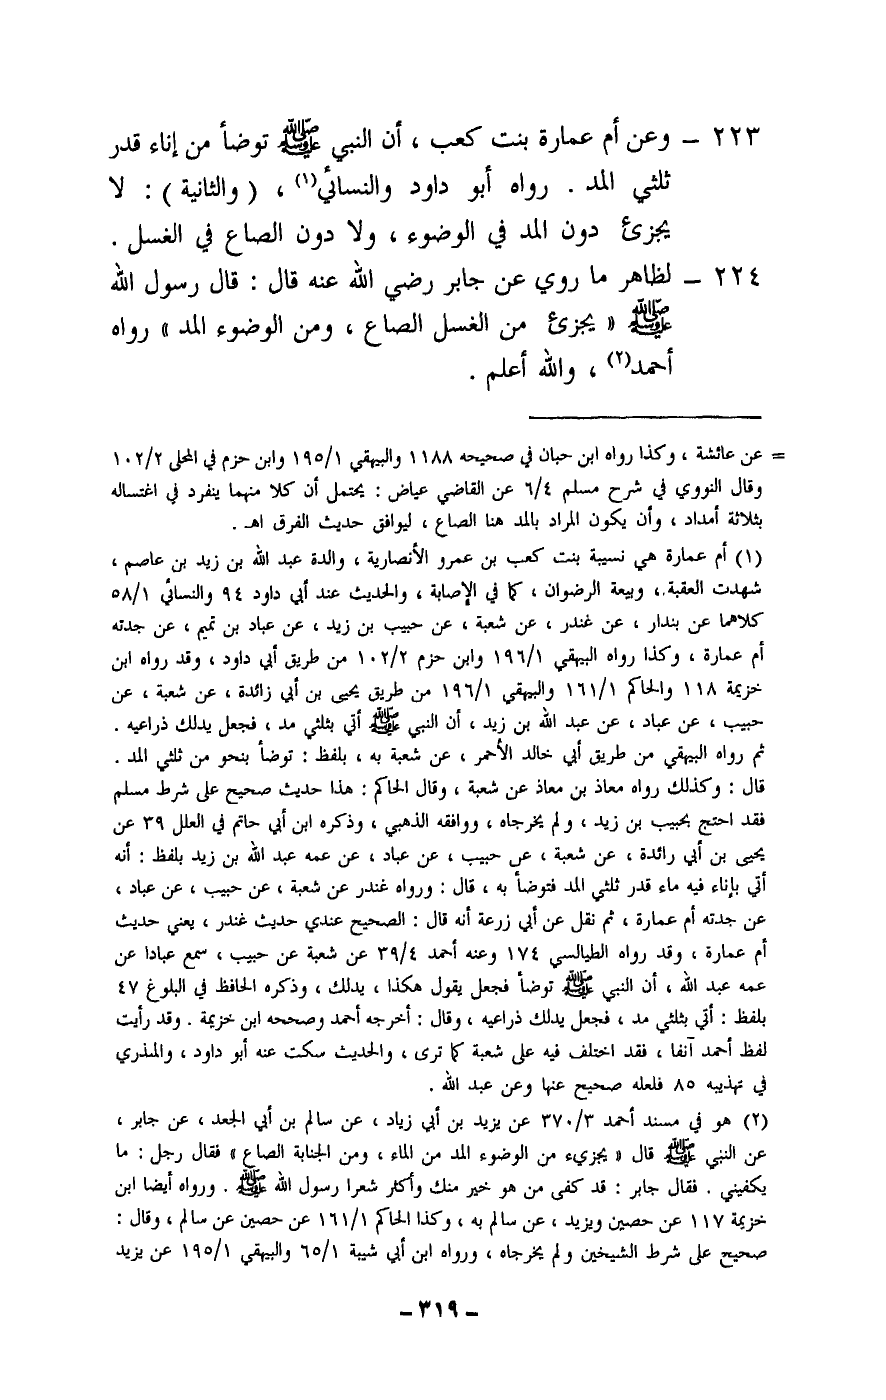 ٢٢٣ – وعن أم عمارة بنت كعب ، أن النبي ﷺ توضأ من إناء قدر
ثلثي المد . رواه أبو داود والنسائي(١) ، ( والثانية ) : لا
يجزئ دون المد في الوضوء ، ولا دون الصاع في الغسل .
٢٢٤ – لظاهر ما روي عن جابر رضي الله عنه قال : قال رسول الله
ﷺ « يجزئ من الغسل الصاع ، ومن الوضوء المد » رواه
أحمد(٢) ، والله أعلم .
= عن عائشة ، وكذا رواه ابن حبان في صحيحه ١١٨٨ والبيهقي ١٩٥/١ وابن حزم في المحلى ١٠٢/٢
وقال النووي في شرح مسلم ٦/٤ عن القاضي عياض : يحتمل أن كلا منهما ينفرد في اغتساله
بثلاثة أمداد ، وأن يكون المراد بالمد هنا الصاع ، ليوافق حديث الفرق اهـ .
(١) أم عمارة هي نسيبة بنت كعب بن عمرو الأنصارية ، والدة عبد الله بن زيد بن عاصم ،
شهدت العقبة ، وبيعة الرضوان ، كما في الإصابة ، والحديث عند أبي داود ٩٤ والنسائي ٥٨/١
كلاهما عن بندار ، عن غندر ، عن شعبة ، عن حبيب بن زيد ، عن عباد بن تميم ، عن جدته
أم عمارة ، وكذا رواه البيهقي ١٩٦/١ وابن حزم ١٠٢/٢ من طريق أبي داود ، وقد رواه ابن
خزيمة ١١٨ والحاكم ١٦١/١ والبيهقي ١٩٦/١ من طريق يحيى بن أبي زائدة ، عن شعبة ، عن
حبيب ، عن عباد ، عن عبد الله بن زيد ، أن النبي ﷺ أتي بثلثي مد ، فجعل يدلك ذراعيه .
ثم رواه البيهقي من طريق أبي خالد الأحمر ، عن شعبة به ، بلفظ : توضأ بنحو من ثلثي المد .
قال : وكذلك رواه معاذ بن معاذ عن شعبة ، وقال الحاكم : هذا حديث صحيح على شرط مسلم
فقد احتج بحبيب بن زيد ، ولم يخرجاه ، ووافقه الذهبي ، وذكره ابن أبي حاتم في العلل ٣٩ عن
يحيى بن أبي زائدة ، عن شعبة ، عن حبيب ، عن عباد ، عن عمه عبد الله بن زيد بلفظ : أنه
أتي بإناء فيه ماء قدر ثلثي المد فتوضأ به ، قال : ورواه غندر عن شعبة ، عن حبيب ، عن عباد ،
عن جدته أم عمارة ، ثم نقل عن أبي زرعة أنه قال : الصحيح عندي حديث غندر ، يعني حديث
أم عمارة ، وقد رواه الطيالسي ١٧٤ وعنه أحمد ٣٩/٤ عن شعبة عن حبيب ، سمع عبادا عن
عمه عبد الله ، أن النبي ﷺ توضأ فجعل يقول هكذا ، يدلك ، وذكره الحافظ في البلوغ ٤٧
بلفظ : أتي بثلثي مد ، فجعل يدلك ذراعيه ، وقال : أخرجه أحمد وصححه ابن خزيمة . وقد رأيت
لفظ أحمد آنفا ، فقد اختلف فيه على شعبة كما ترى ، والحديث سكت عنه أبو داود ، والمنذري
في تهذيبه ٨٥ فلعله صحيح عنها وعن عبد الله .
(٢) هو في مسند أحمد ٣٧٠/٣ عن يزيد بن أبي زياد ، عن سالم بن أبي الجعد ، عن جابر ،
عن النبي ﷺ قال « يجزيء من الوضوء المد من الماء ، ومن الجنابة الصاع » فقال رجل : ما
يكفيني . فقال جابر : قد كفى من هو خير منك وأكثر شعرا رسول الله ﷺ . ورواه أيضا ابن
خزيمة ١١٧ عن حصين ويزيد ، عن سالم به ، وكذا الحاكم ١٦١/١ عن حصين عن سالم ، وقال :
صحيح على شرط الشيخين ولم يخرجاه ، ورواه ابن أبي شيبة ٦٥/١ والبيهقي ١٩٥/١ عن يزيد
– ٣١٩ –